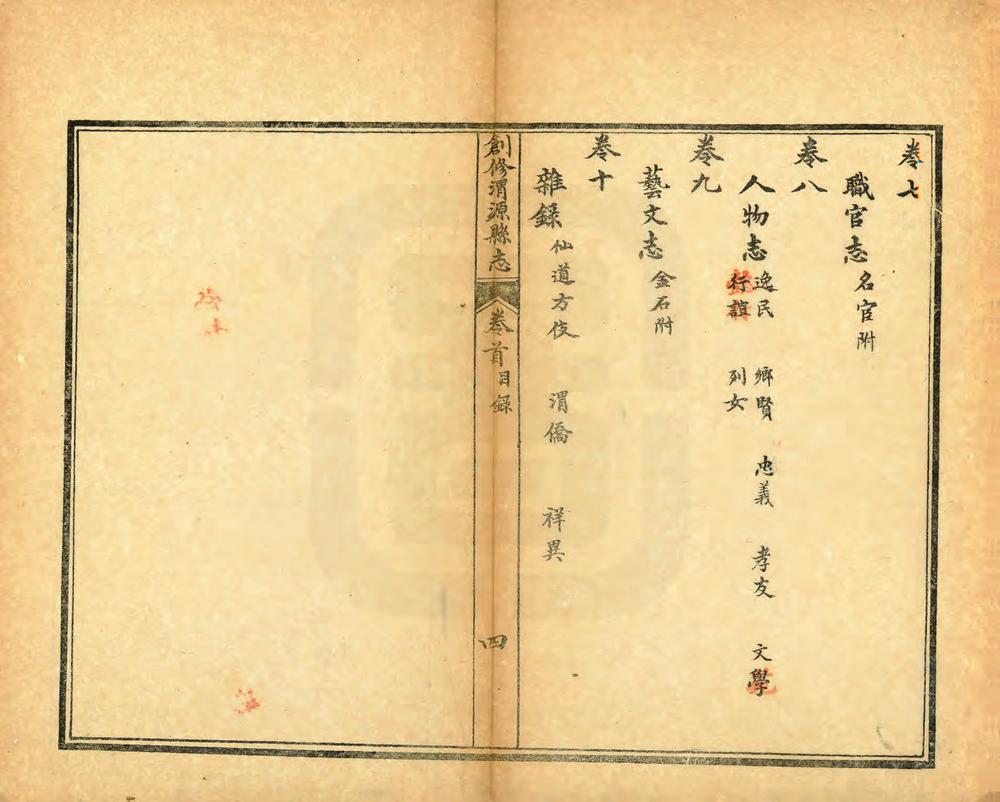 卷七
職官志 名官附
卷八
人物志 逸民 鄉賢 忠義 孝友 文學
行誼 列女
卷九
藝文志 金石附
卷十
雜錄 仙道方伎 渭僑 祥異
創修渭源縣志 卷首 目錄 四